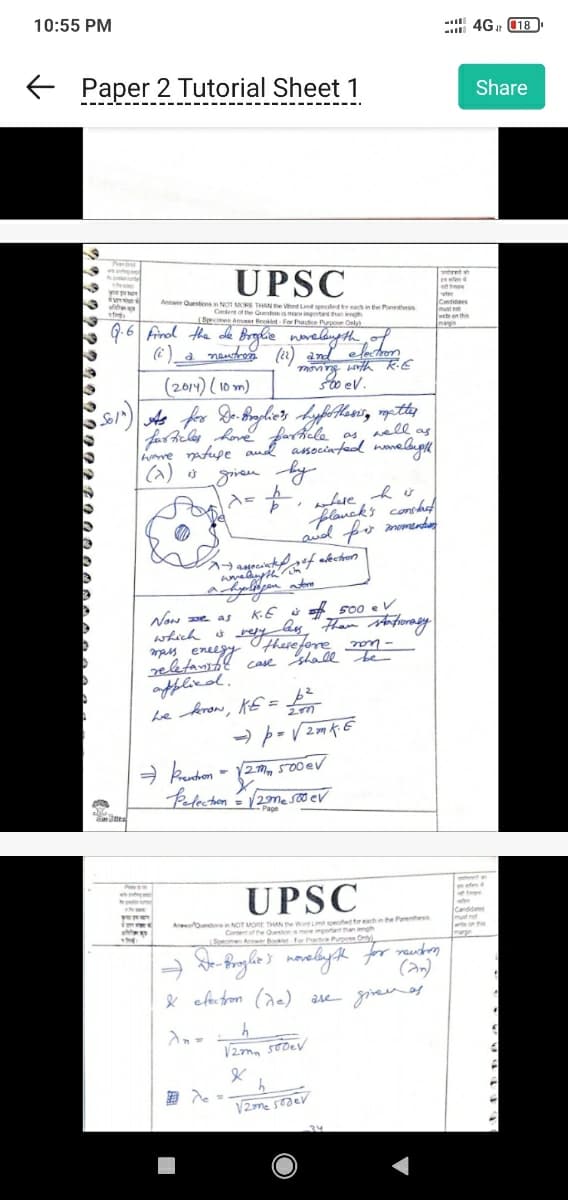 10:55 PM
4G 18
Paper 2 Tutorial Sheet 1
Share
UPSC
Answer Questions in NOT MORE THAN the Word Limit specified for each in the Parenthesis.
Content of the Question is more important than length
(Specimen Answer Booklet - For Practice Purpose Only)
Candidates
must not
write on this
margin
Q.6 Find the de Broglie wavelength of
(i) a neutron (ii) and electron
moving with K.E
500 eV.
(2014) (10 m)
Solⁿ) As per De-Broglie's hypothesis, matter
particles have particle as well as
wave nature and associated wavelength
(λ) is given by
λ = h/p , where h is
planck's constant
and p is momentum
e
λ → associated of electron
wavelength in
a hydrogen atom
Now as K.E is 500 eV
which is very less than stationary
mass energy therefore non-
case shall be
applied.
we know, KE = p²/2m
⇒ p = √2mK.E
⇒ Pneutron = √2mₙ 500eV
&
Pelectron = √2me 500 eV
Page
UPSC
Answer Questions in NOT MORE THAN the Word Limit specified for each in the Parenthesis.
Content of the Question is more important than length
(Specimen Answer Booklet - For Practice Purpose Only)
Candidates
must not
write on this
margin
⇒ De-Broglie's wavelength for neutron
(λn)
& electron (λe) are given as
λn = h/√2mn 500eV
&
λe = h/√2me 500eV
34